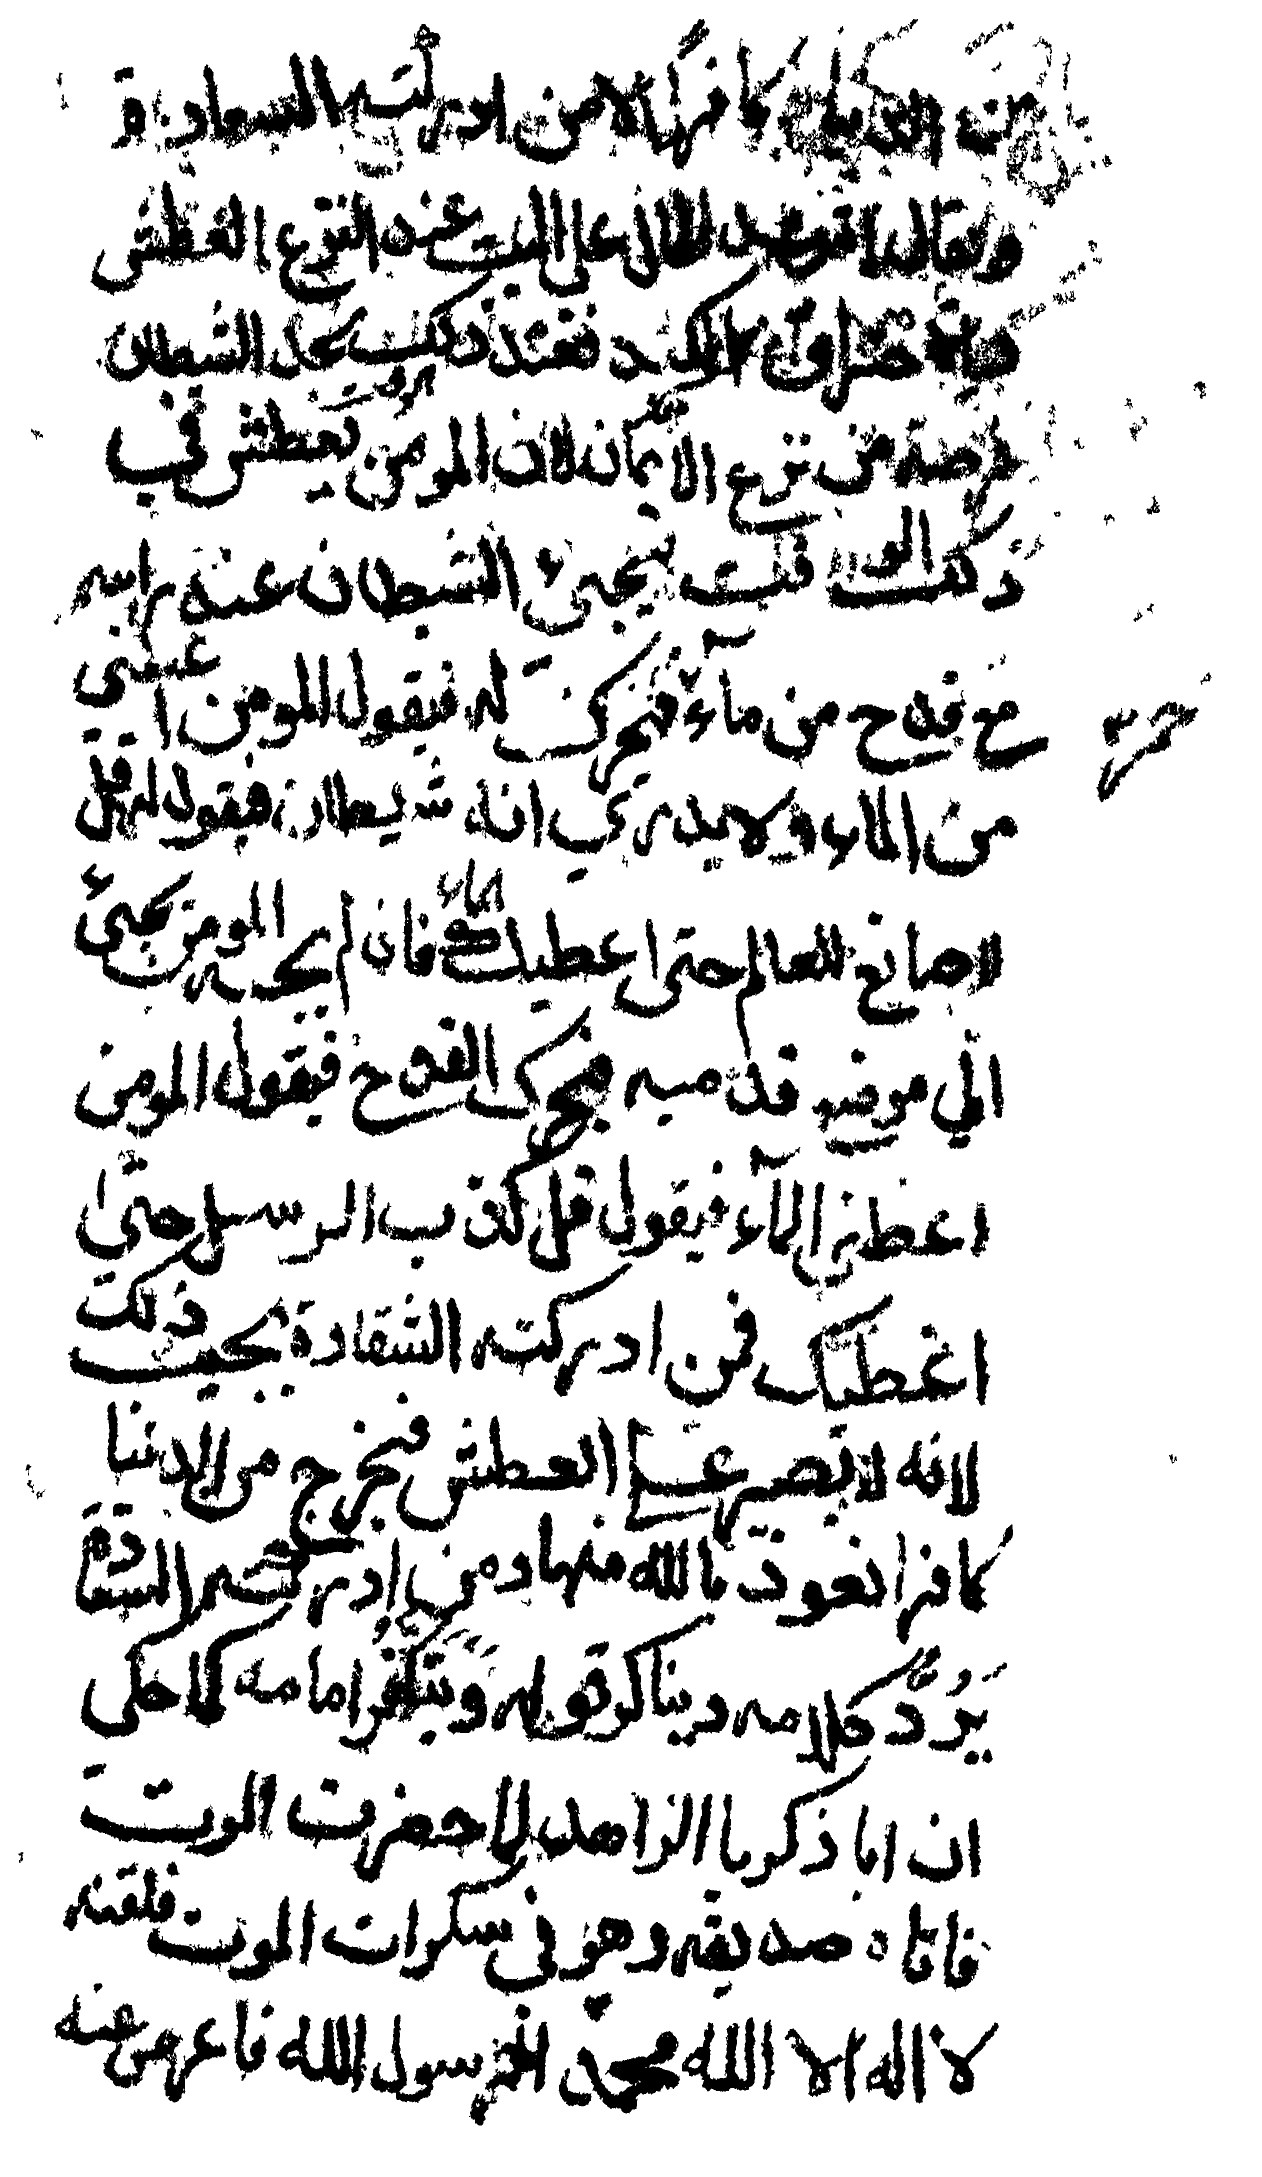 من الدنيا كافرا الا من ادركته السعادة
ويقال اشد الحال على الميت عند النزع العطش
واحتراق الكبد فعند ذلك يجد الشيطان
فرصة من نزع الايمان لان المومن يعطش في
ذلك الوقت فيجئ الشيطان عند راسه
مع قدح من مآء فيحرك له فيقول المومن اعطني
من الماء ولا يدري انه شيطان فيقول له قل
لا صانع للعالم حتى اعطيك الماء فان لم يجبه المومن يجئ
الي موضع قدميه فيحرك القدح فيقول المومن
اعطني المآء فيقول قل كذب الرسل حتى
اعطيك فمن ادركته الشقاوة يجيب ذلك
لانه لا يصير على العطش فيخرج من الدنيا
كافرا نعوذ بالله منها ومن ادركته السعادة
يَرُدّ كلامه ويتفكر امامه كما حكي
ان ابا ذكريا الزاهد لما حضرت الموت
فاتاه صديقه وهو في سكرات الموت فلقنه
لا اله الا الله محمد رسول الله فاعرض عنه